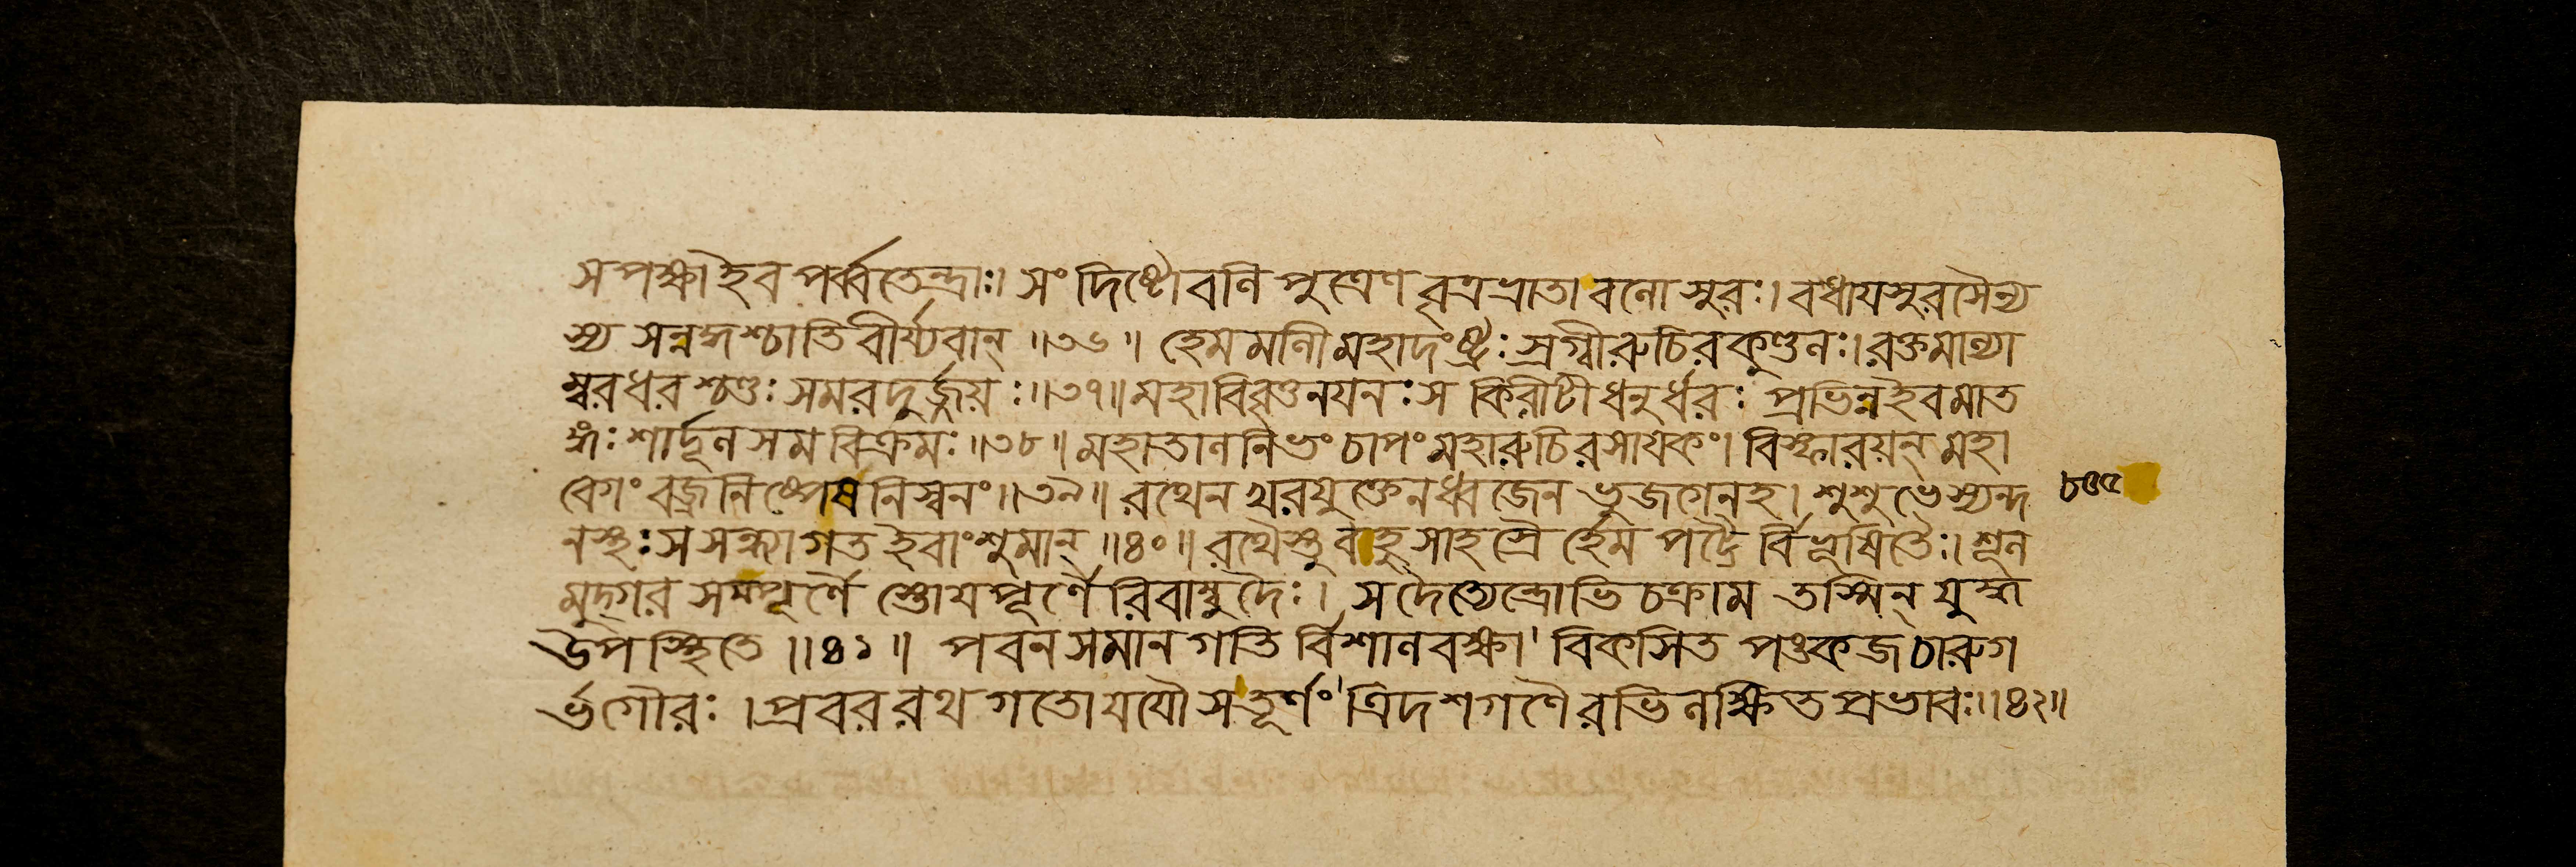 সপক্ষাইব পর্ব্বতেন্দ্রাঃ। সংদিষ্টৌবলি পুত্রেণ বৃত্রভ্রাতা বলোসুরঃ। বধাযসুরসৈন্য
স্য সন্নদ্ধশ্চাতিবীর্য্যবান্ ॥৩৬॥ হেমমালী মহাদংষ্ট্রঃ স্রগ্বীরুচিরকুণ্ডলঃ। রক্তমাল্যা
ম্বরধরশ্চণ্ডঃ সমরদুর্জ্জয়ঃ॥৩৭॥ মহাবিবৃতনযনঃ স কিরীটী ধনুর্ধরঃ প্রভিন্নইবমাত
ঙ্গঃ শার্দূলসমবিক্রমঃ॥৩৮॥ মহাতালনিভং চাপং মহারুচিরসাযকং। বিস্ফারয়ন্ মহা
বেগং বজ্রনিষ্পেষনিস্বনং॥৩৯॥ রথেন খরযুক্তেনধ্বজেন ভুজগেনহ। শুশুভেস্যন্দ
নস্থঃ সসন্ধ্যাগত ইবাংশুমান্ ॥৪০॥ রথৈস্তু বহুসাহস্রৈর্হেম পট্টৈর্বিভূষিতৈঃ। শূল
মুদ্গর সম্পূর্ণৈ স্তোযপূর্ণৈরিবাম্বুদৈঃ। সদৈত্যেন্দ্রোভিচক্রাম তস্মিন্ যুদ্ধ
উপস্থিতে ॥৪১॥ পবনসমানগতির্বিশালবক্ষা' বিকসিত পঙ্কজচারুগ
র্ভগৌরঃ। প্রবররথ গতোযযৌ সতূর্ণং' ত্রিদশগণৈরভিলক্ষিতপ্রভাবঃ॥৪২॥
৮৩৫